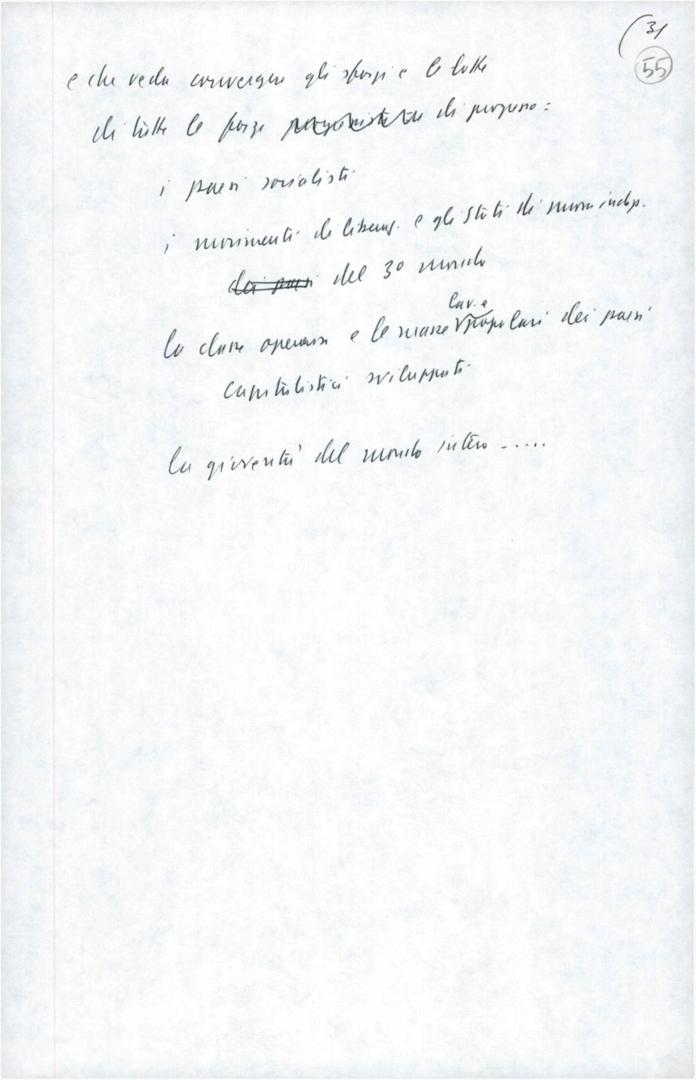 31
55
e che veda convergere gli sforzi e le lotte
di tutte le forze di progresso:
i paesi socialisti
i movimenti di liberaz. e gli Stati di nuova indip.
dei paesi del 3º mondo
lav. e
la classe operaia e le masse popolari dei paesi
capitalistici sviluppati
la gioventù del mondo intero .....